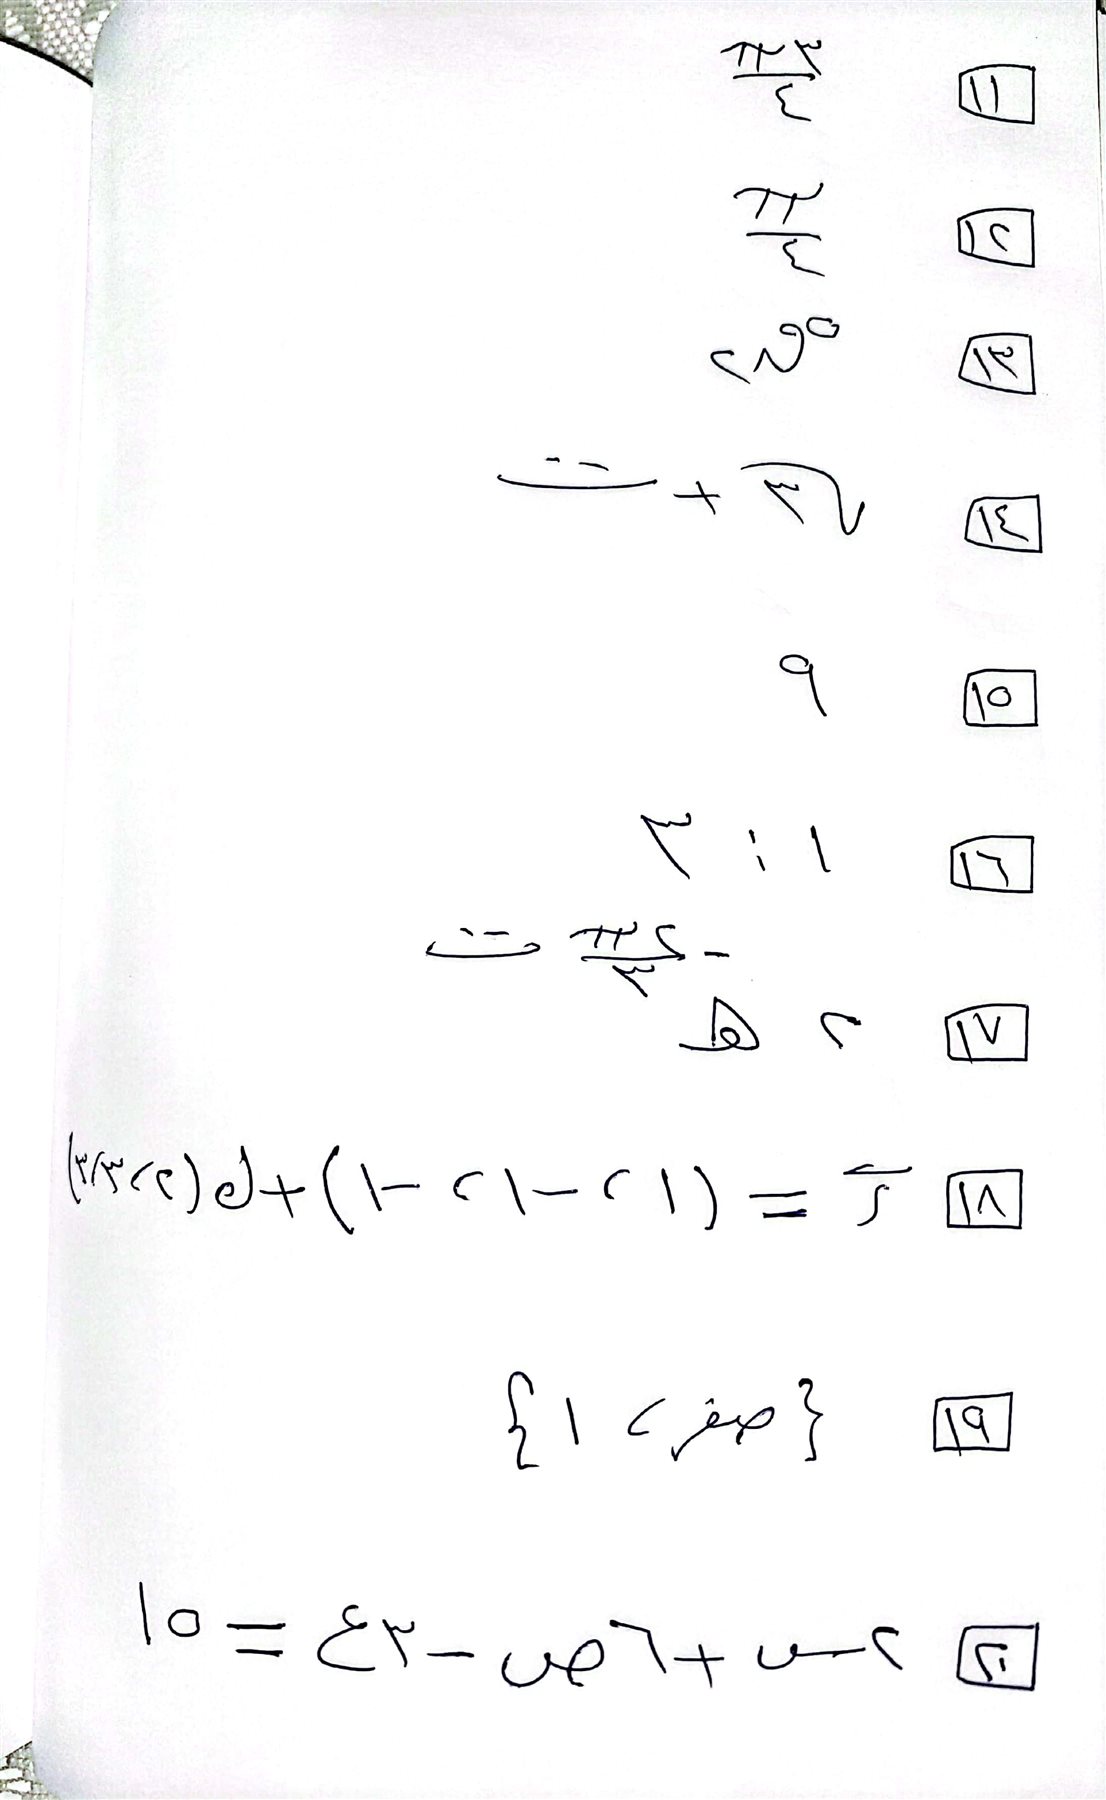 ١١ ٣π/٤
١٢ π/٤
١٣ ٥ق٢
١٤ √٣ + ت
١٥ ٩
١٦ ١ : ٣
١٧ ٢ هـ -٢π/٣ ت
١٨ ر = (١، -١، -١) + ك(٢، ٣، ٣)
١٩ {صفر، ١}
٢٠ ٢س + ٦ص - ٣ع = ١٥